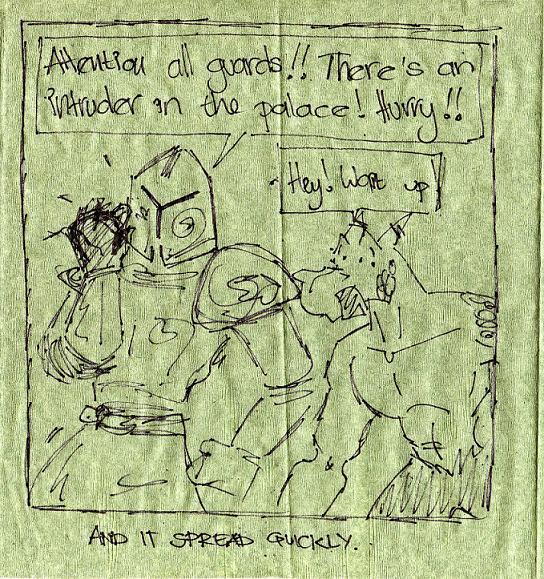 Attention all guards!! There's an
intruder in the palace! Hurry!!
Hey! Wait up!
AND IT SPREAD QUICKLY.